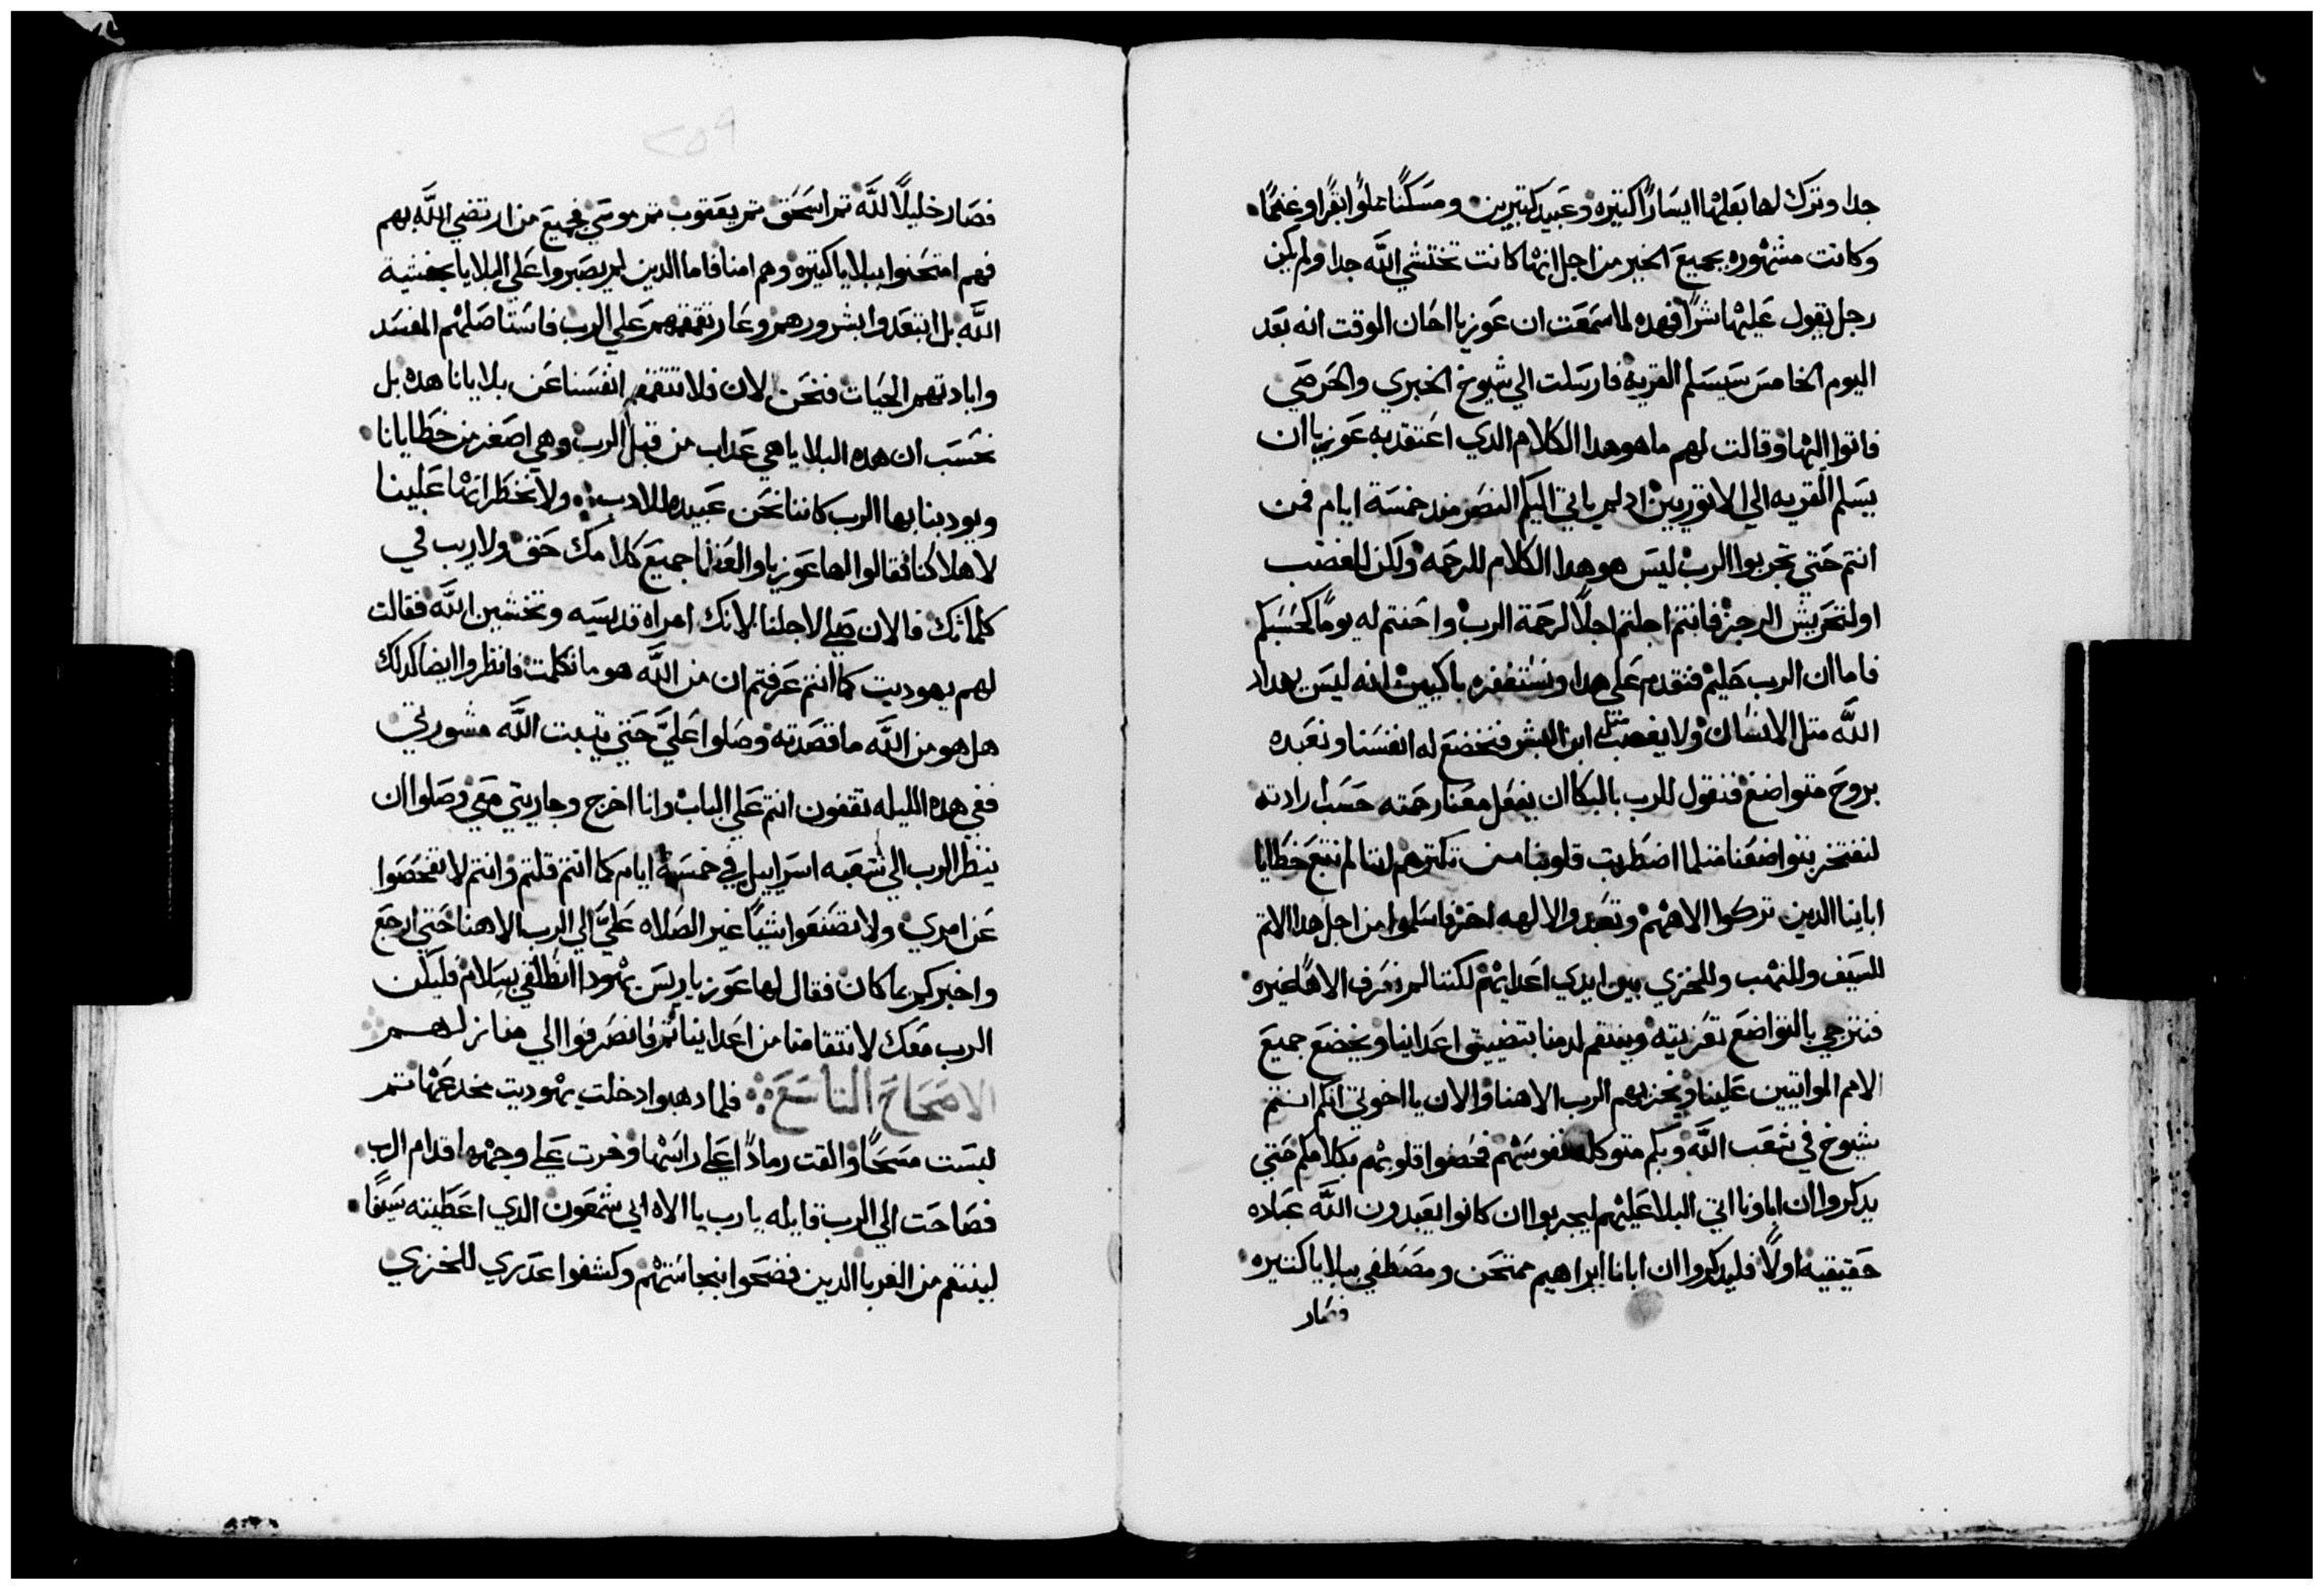 جدا وترك لها بعلها ايسارًا كتيره وعبيد كتيرين ومسكنًا مملوًا بقرًا وغنمًا
وكانت مشهوره بجميع الخير من اجل انها كانت تختشي اللَّه جدا ولم يكن
رجل يقول عليها شرًا فهده لما سمعت ان عوزيا احان الوقت انه بعد
اليوم الخامس سيسلم القريه فارسلت الي شيوخ الخبري والخرمي
فاتوا اليها وقالت لهم ما هو هدا الكلام الدي اعتقد به عوزيا ان
يسلم القريه الي الاتوريين اد لم ياتي اليكم النصر مند خمسة ايام فمن
انتم حتي تجربوا الرب ليس هو هدا الكلام للرحمه ولكن للغضب
اولتحريش الرجز فانتم اجلتم اجلًا لرحمة الرب واخنتم له يومًا كحسبكم
فاما ان الرب حليم فنقدم علي هدا ونستغفره باكيين انه ليس يهدد
اللَّه متل الانسان ولا يغضب متل ابن البشر فنخضع له انفسنا ونعبده
بروح متواضع فنقول للرب بالبكا ان يفعل معنا رحمته حسب ارادته
لنفتخر بتواضعنا متلما اضطربت قلوبنا من تكبرهم لننا لم نتبع خطايا
اباينا الدين تركوا الاههم وتعبدوا لالهه اخر فاسلموا من اجل هدا الاتم
للسيف وللنهب وللخزي بين ايدي اعدايهم لكننا لم نعرف الاهًا غيره
فنترجي بالتواضع تعزيته وينتقم لدمنا بتضييق اعداينا ويخضع جميع
الامم المواتيين علينا ويخزيهم الرب الاهنا والان يا اخوتي انكم انتم
شيوخ في شعب اللَّه وبكم متوكله نفوسهم فحضوا قلوبهم بكلامكم حتي
يدكروا ان اباونا اتي البلا عليهم ليجربوا ان كانوا يعبدون اللَّه عباده
حقيقيه اولًا فليدكروا ان ابانا ابراهيم ممتحن ومصطفي ببلايا كتيره
فصار
٢٥٩
فصار خليلًا للَّه تم اسحق تم يعقوب تم موسي فجميع من ارتضي اللَّه بهم
فهم امتحنوا ببلايا كتيره وهم امنا فاما الدين لم يصبروا علي البلايا بخشية
اللَّه بل ابتعدوا بشرورهم وعار تقمقمهم علي الرب فاستاصلهم المفسد
وابادتهم الحيات فنحن لان فلا نتقمقم انفسنا عن بلايانا هده بل
نحسب ان هده البلايا هي عداب من قبل الرب وهي اصغر من خطايانا
ويودبنا بها الرب كاننا نحن عبيده للادب ولا نخطر انها علينا
لاهلاكنا فقالوا لها عوزيا والعظما جميع كلامك حق ولا ريب في
كلماتك فالان صلي لاجلنا لانك امراه قديسيه وتخشين اللَّه فقالت
لهم يهوديت كما انتم عرفتم ان من اللَّه هو ما تكلمت فانظروا ايضا كدلك
هل هو من اللَّه ما قصدته وصلوا عليَّ حتي يتبت اللَّه مشورتي
ففي هده الليله تقفون انتم علي الباب وانا اخرج وجاريتي معي وصلوا ان
ينظر الرب الي شعبه اسراييل في خمسة ايام كما انتم قلتم وانتم لا تفحصوا
عن امري ولا تصنعوا شيًا غير الصلاه عليَّ الي الرب الاهنا حتي ارجع
واخبركم بما كان فقال لها عوزيا ريس يهودا انطلقي بسلام وليكن
الرب معك لانتقامنا من اعداينا تم فانصرفوا الي منازلهم
الاصحاح التاسع فلما دهبوا دخلت يهوديت مخدعها تم
لبست مسحًا والقت رمادًا علي راسها وخرت علي وجهها قدام الرب
فصاحت الي الرب قايله يا رب يا الاه ابي شمعون الدي اعطيته سيفًا
لينتقم من الغربا الدين فضحوا بنجاستهم وكشفوا عدري للخزي